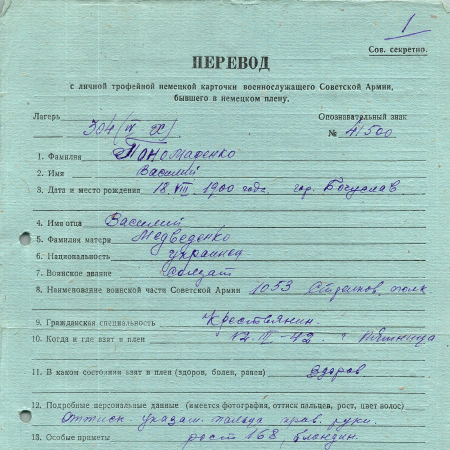 1
Сов. секретно.
ПЕРЕВОД
с личной трофейной немецкой карточки военнослужащего Советской Армии,
бывшего в немецком плену.
Лагерь 304 (IV Опознавательный знак
№ 41500
1. Фамилия Пономаренко
2. Имя Василий
3. Дата и место рождения 18. VIII 1900 года гор. Богуслав
4. Имя отца Василий
5. Фамилия матери Медведенко
6. Национальность украинец
7. Воинское звание солдат
8. Наименование воинской части Советской Армии 1053 Стрелков. полк
9. Гражданская специальность Крестьянин.
10. Когда и где взят в плен 12. -42
11. В каком состоянии взят в плен (здоров, болен, ранен) Здоров
12. Подробные персональные данные (имеется фотография, оттиск пальцев, рост, цвет волос)
Оттиск указат. пальца прав. руки.
13. Особые приметы рост 168, блондин.